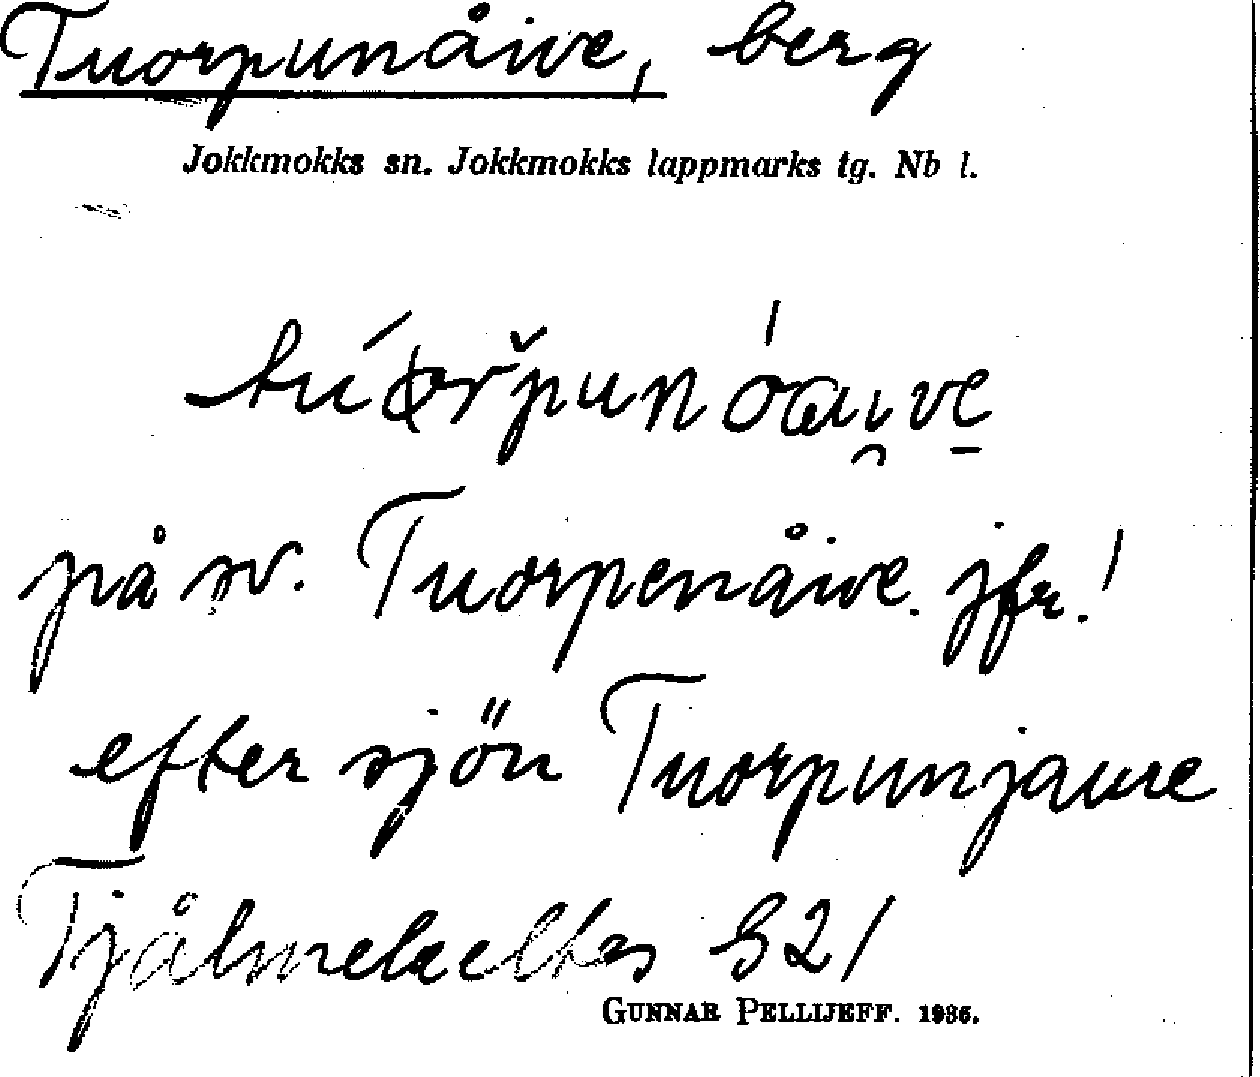 Tuorpunåive, berg
Jokkmokks sn. Jokkmokks lappmarks tg. Nb l.
på sv. Tuorpenåive. jfr!
efter sjön Tuorpunjaure
S21
GUNNAR PELLIJEFF. 1936.